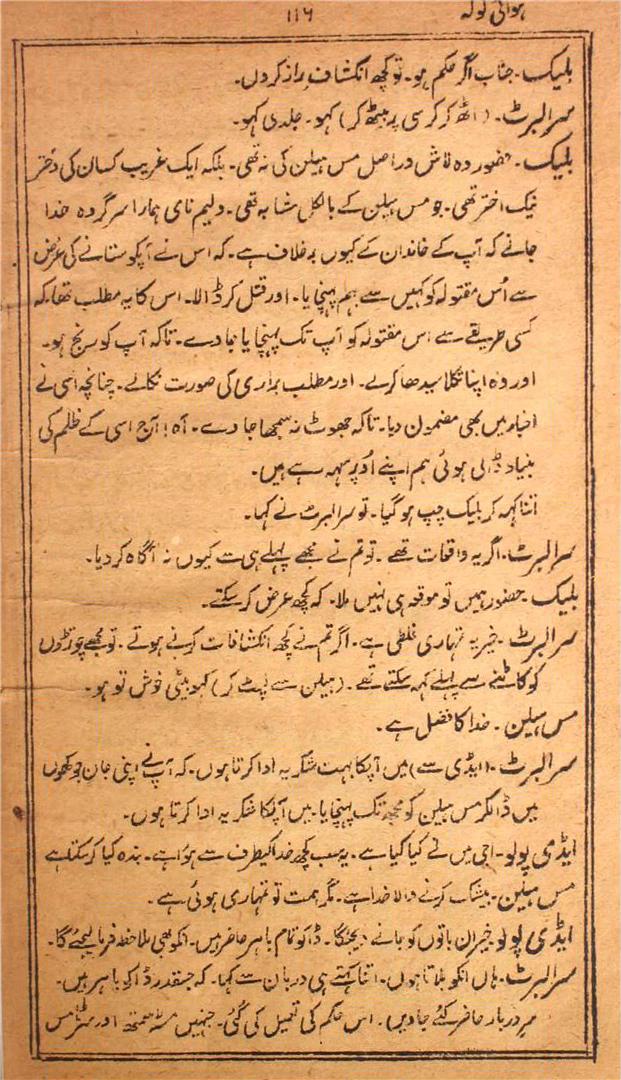 ہوائی گولہ ۱۱۶
بلیک۔ جناب اگر حکم ہو۔ تو کچھ انکشاف راز کردوں۔
سرالبرٹ۔ (اٹھ کر کرسی پر بیٹھ کر) کہو۔ جلدی کہو۔
بلیک۔ حضور وہ لاش دراصل مس ہیلن کی نہ تھی۔ بلکہ ایک غریب کسان کی دختر
نیک اختر تھی۔ جو مس ہیلن کے بالکل مشابہ تھی۔ ولیم نامی ہمارا سرگروہ خدا
جانے کہ آپ کے خاندان کے کیوں برخلاف ہے۔ کہ اس نے آپکو ستانے کی غرض
سے اُس مقتولہ کو کہیں سے بہم پہنچایا۔ اور قتل کر ڈالا۔ اس کا یہ مطلب تھا۔ کہ
کسی طریقے سے اس مقتولہ کو آپ تک پہنچایا جاوے۔ تاکہ آپ کو رنج ہو۔
اور وہ اپنا تکلا سیدھا کرلے۔ اور مطلب براری کی صورت نکالے۔ چنانچہ اسی نے
اخبار میں بھی مضمون دیا۔ تاکہ جھوٹ نہ سمجھا جاوے۔ آہ! آج اسی کے ظلم کی
بنیاد ڈالی ہوئی ہم اپنے اُوپر سہہ رہے ہیں۔
اتنا کہہ کر بلیک چپ ہو گیا۔ تو سرالبرٹ نے کہا۔
سرالبرٹ۔ اگر یہ واقعات تھے۔ تو تم نے مجھے پہلے ہی سے کیوں نہ آگاہ کر دیا۔
بلیک۔ حضور ہمیں تو موقعہ ہی نہیں ملا۔ کہ کچھ عرض کر سکتے۔
سرالبرٹ۔ خیر یہ تمہاری غلطی ہے۔ اگر تم نے کچھ انکشافات کرنے ہوتے۔ تو مجھے چوتڑوں
کو کاٹنے سے پہلے کہہ سکتے تھے۔ (ہیلن سے لپٹ کر) کہو بیٹی خوش تو ہو۔
مس ہیلن۔ خدا کا فضل ہے۔
سرالبرٹ۔ (ایڈی سے) میں آپکا بہت شکریہ ادا کرتا ہوں۔ کہ آپ نے اپنی جان جوکھوں
میں ڈالکر مس ہیلن کو مجھ تک پہنچایا۔ میں آپکا شکریہ ادا کرتا ہوں۔
ایڈی پولو۔ اجی میں نے کیا کیا ہے۔ یہ سب کچھ خدا کیطرف سے ہوا ہے۔ بندہ کیا کر سکتا ہے
مس ہیلن۔ بیشک کرنے والا خدا ہے۔ مگر ہمت تو تمہاری ہوئی ہے۔
ایڈی پولو۔ خیر ان باتوں کو جانے دیجئگا۔ ڈاکو تمام باہر حاضر ہیں۔ انکو بھی ملاحظہ فرما لیجئے گا۔
سرالبرٹ۔ ہاں انکو بلاتا ہوں۔ اتنا کہتے ہی دربان سے کہا۔ کہ جسقدر ڈاکو باہر ہیں۔
سر دربار حاضر کئے جاویں۔ اس حکم کی تعمیل کی گئی۔ جنہیں مسٹر سمتھ اور مسٹر مس